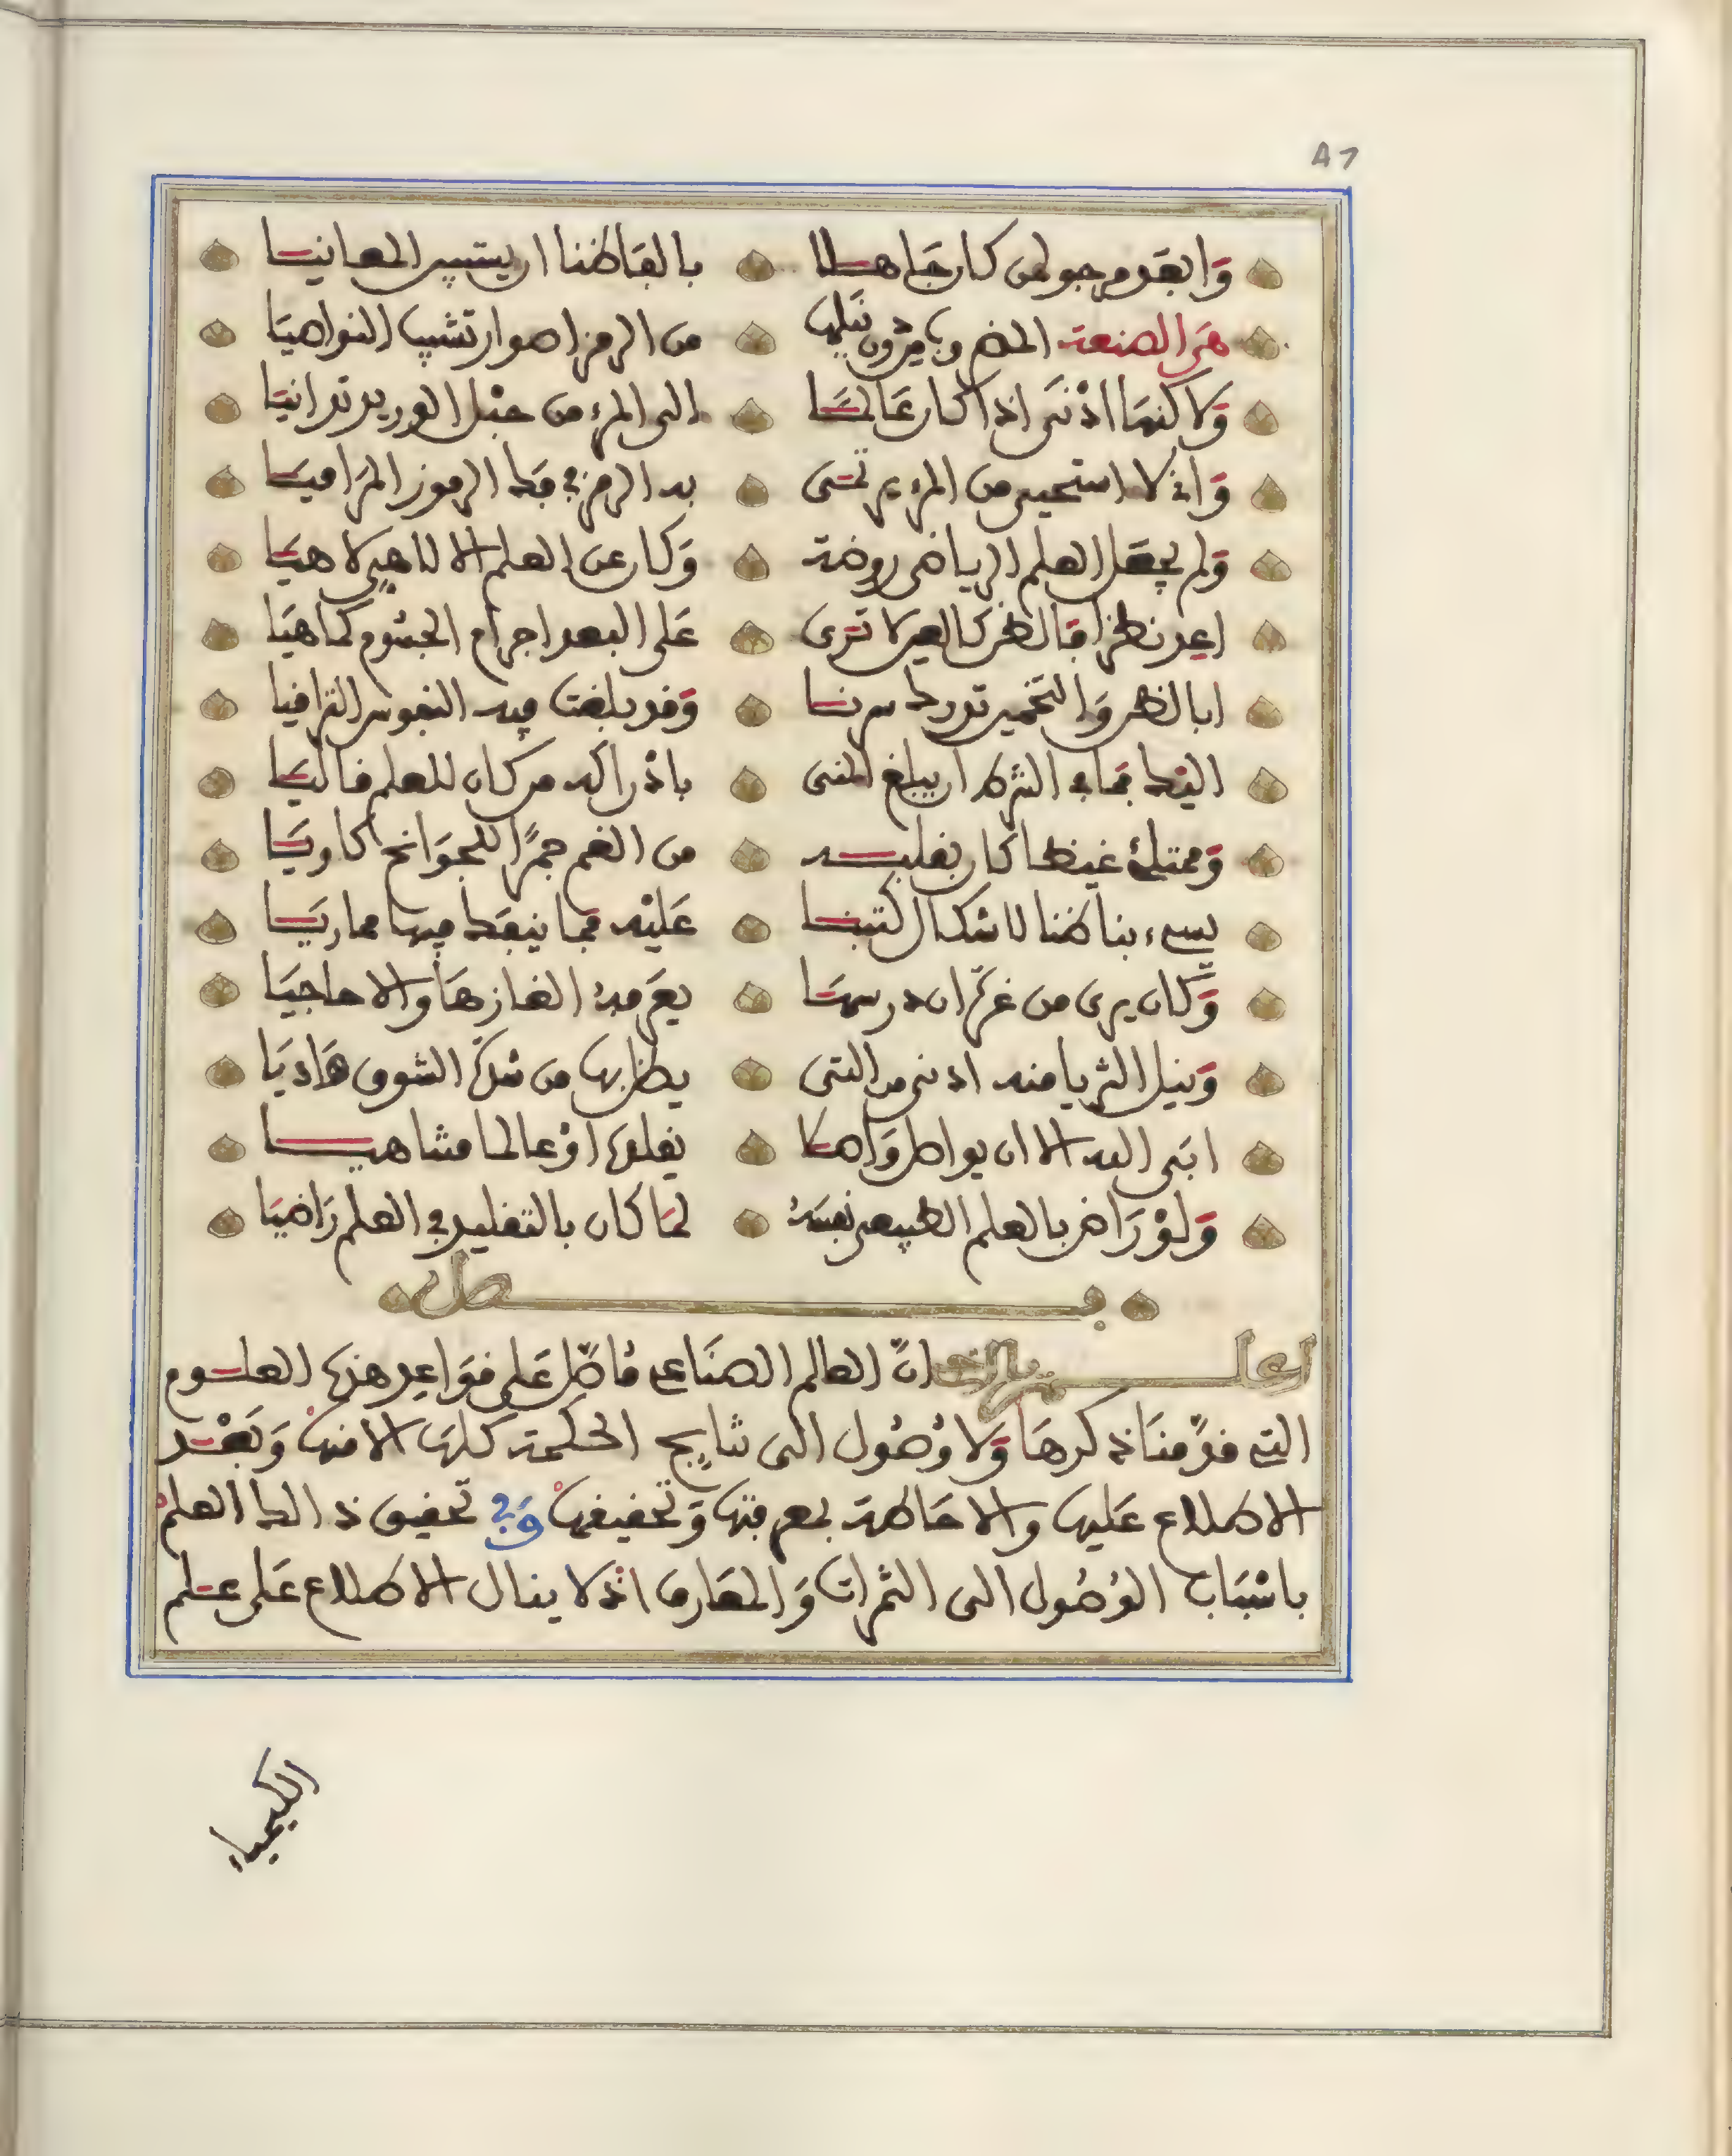 47
وَابعَد مرجو لمن كان جَاهــلا بالفاظنا ان يستبين المعانيــا
هي الصنعة المضروب من دون نيلها من الرمز اسوار تشيب النواصيَا
وَلاكنهَا ادْنَى اذا كان عَالمــا الى المرء من حبْل الوريد تدانيَا
وَانى لا استحيى من المرء يرتمــى به الرمز في تلك الرموز المَراميَا
وَلم يجعل العلم الرياضى روضة وَكان عن العلم الالاهي لاهيَا
اعِد نظرا فالطرف كالعين لا تَرى عَلى البعد اجرام الجسُوم كما هيَا
ابا لظن وَالتخمين تدرك سرنــا وَقد بلغت فيه النفوس التراقيا
اليْك فما في الشرط ان يبلغ المنى بادْراكه من كان للعلم قاليَا
وَممتلئ غيظا كان بقلبــه من الغم جمرًا للجوَانح كاويَا
يسيء بنا ظنا لاشكال كتبنــا عَليْه فما ينفك فيها مماريَا
وَكان يرى من غرّة ان درسهَا يعَرفهُ الغازهَا والاحاجيَا
وَنيل الثريا منه ادنى من التى يظن بها من شدّة الشوق هَاذيَا
ابَى الله الا ان يواصل وَاصــلا بقلها اوْ عالما متناهيــا
وَلوْ رَاض بالعلم الطبيعي نفسَهُ لمَا كان بالتقليد في العلم رَاضيَا
فــصل
اعلــم انّ العالم الصناعي فاضل عَلى قوَاعد هذه العلــوم
التي قدّمنَا ذكرهَا وَلا وُصُول الى نتايج الحكمة كلهَا الا منهَا وَبَعْــد
الاطلاع عَليها والاحَاطة بمعرفتها وَتحقيقهَا وَفي تحقيق ذالك العلمُ
باسْبَاب الوُصُول الى الثمرات وَالمعَارف اذ لا ينال الاطلاع عَلى علــم
الكيمياء